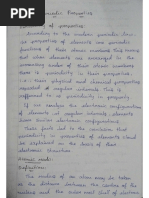 Periodic Properties
Periodicity of properties
According to the modern periodic law,
the properties of elements are periodic
functions of their atomic numbers. This means
that when elements are arranged in the
increasing order of their atomic numbers
there is periodicity in their properties.
i.e. their physical and chemical properties
repeated themselves at regular intervals.
If we analyse the electronic configurations
of elements at regular intervals, elements
have similar electronic configurations.
These facts led to the conclusion that
periodicity in properties of elements should
be explained on the basis of their
electronic structure.
Atomic radii
Definition:
The radius of an atom may be taken
as the distance between the centre of the
nucleus and the outer most shell of electrons